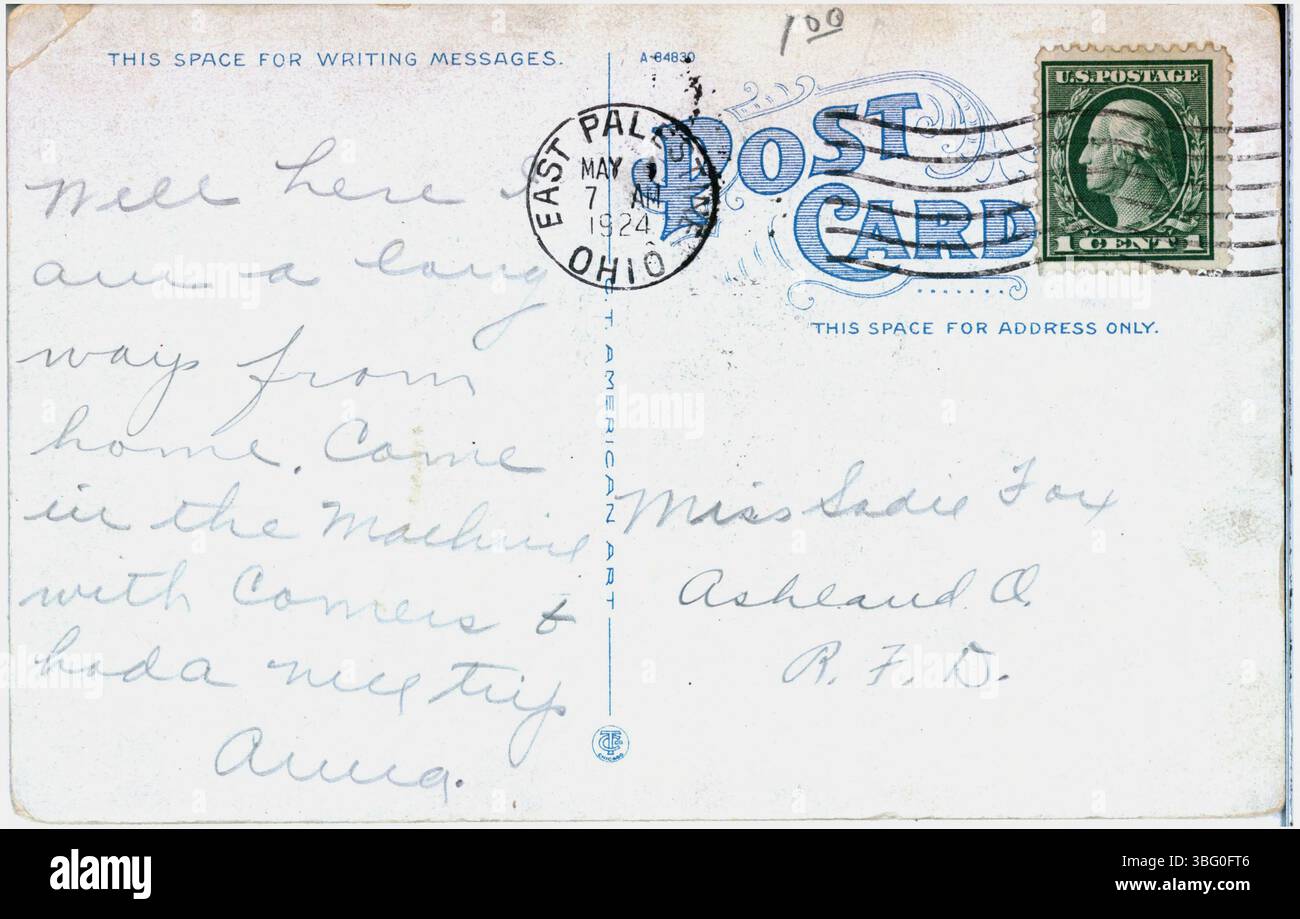 THIS SPACE FOR WRITING MESSAGES.
Well here I
am a long
ways from
home. Come
in the Machine
with Comers &
had a nice trip
Anna.
A-84830
1 00
EAST PALESTINE
MAY
7 AM
1924
OHIO
POST
CARD
U.S. POSTAGE
1 CENT 1
THIS SPACE FOR ADDRESS ONLY.
Miss Sadie Fox
Ashland O.
R. F. D.
AMERICAN ART
CHICAGO
alamy
Image ID: 3BG0FT6
www.alamy.com